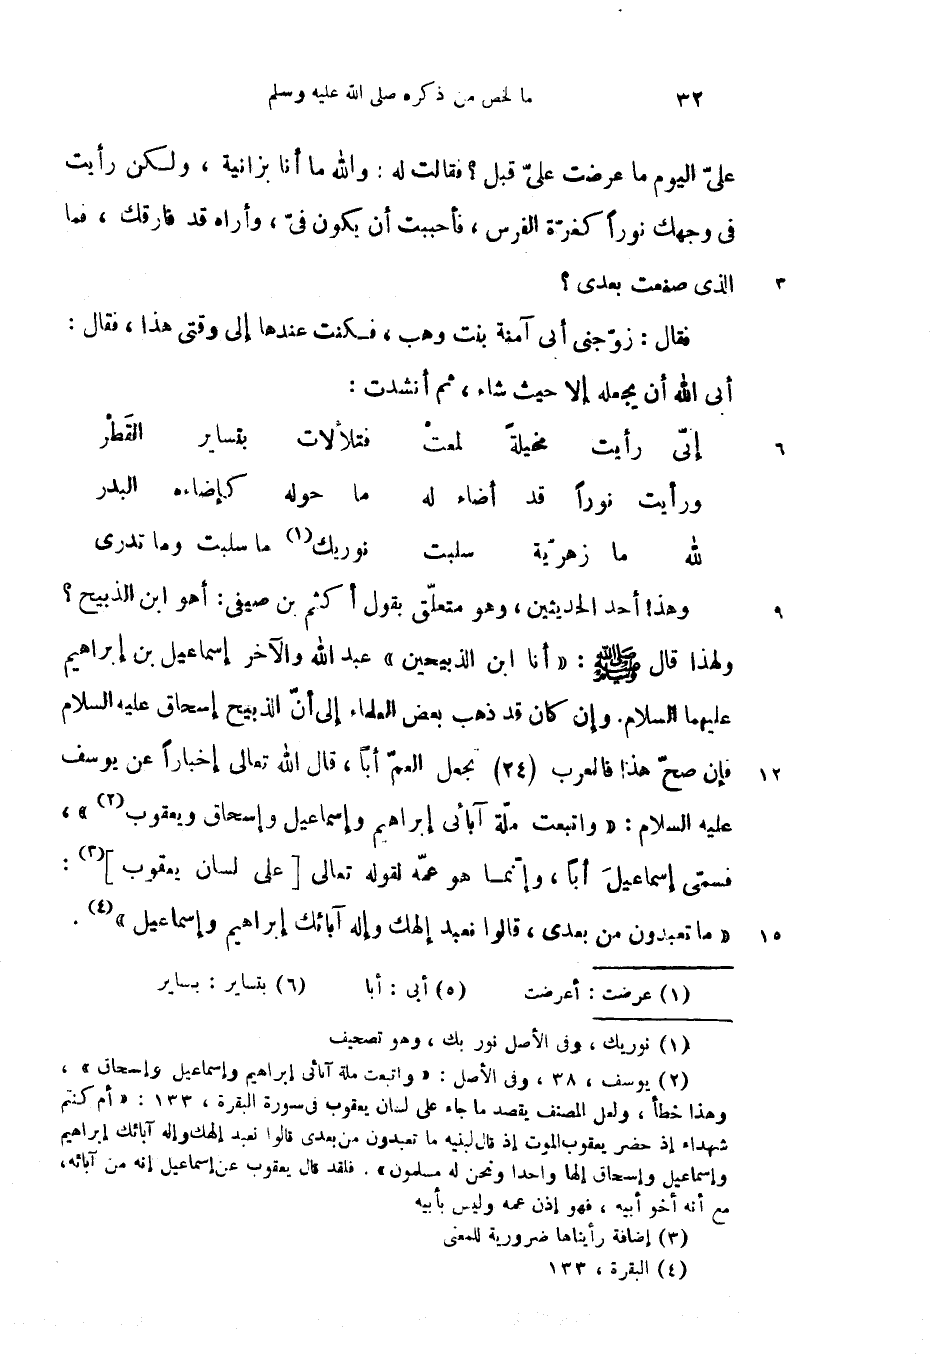 ٣٢ ما لخص من ذكره صلى الله عليه وسلم
علىّ اليوم ما عرضت علىّ قبل ؟ فقالت له : والله ما أنا بزانية ، ولكن رأيت
فى وجهك نوراً كغرّة الفرس ، فأحببت أن يكون فىّ ، وأراه قد فارقك ، فما
٣ الذى صنعت بعدى ؟
فقال : زوّجنى أبى آمنة بنت وهب ، فكنت عندها إلى وقتى هذا ، فقال :
أبى الله أن يجعله إلا حيث شاء ، ثم أنشدت :
٦ إنّى رأيت مخيلةً لمعتْ فتلألات بقساير القَطْر
ورأيت نوراً قد أضاء له ما حوله كإضاءه البدر
لله ما زهريّة سلبت نوريك(١) ما سلبت وما تدرى
٩ وهذا أحد الحديثين ، وهو متعلّق بقول أكثم بن صيفى : أهو ابن الذبيح ؟
ولهذا قال ﷺ : « أنا ابن الذبيحين » عبد الله والآخر إسماعيل بن إبراهيم
عليهما السلام. وإن كان قد ذهب بعض العلماء إلى أنّ الذبيح إسحاق عليه السلام
١٢ فإن صحّ هذا فالعرب (٢٤) تجعل العمّ أباً ، قال الله تعالى إخباراً عن يوسف
عليه السلام : « واتبعت ملّة آبائى إبراهيم وإسماعيل وإسحاق ويعقوب(٢) » ،
فسمّى إسماعيلَ أباً ، وإنّما هو عمّه لقوله تعالى [ على لسان يعقوب ](٣) :
١٥ « ما تعبدون من بعدى ، قالوا نعبد إلهك وإله آبائك إبراهيم وإسماعيل »(٤) .
(١) عرضت : أعرضت (٥) أبى : أبا (٦) بقساير : بساير
(١) نوريك ، وفى الأصل نور بك ، وهو تصحيف
(٢) يوسف ، ٣٨ ، وفى الأصل : « واتبعت ملة آبائى إبراهيم وإسماعيل وإسحاق » ،
وهذا خطأ ، ولعل المصنف يقصد ما جاء على لسان يعقوب فى سورة البقرة ، ١٣٣ : « أم كنتم
شهداء إذ حضر يعقوب الموت إذ قال لبنيه ما تعبدون من بعدى قالوا نعبد إلهك وإله آبائك إبراهيم
وإسماعيل وإسحاق إلها واحدا ونحن له مسلمون » . فلقد قال يعقوب عن إسماعيل إنه من آبائه،
مع أنه أخو أبيه ، فهو إذن عمه وليس بأبيه
(٣) إضافة رأيناها ضرورية للمعنى
(٤) البقرة ، ١٣٣